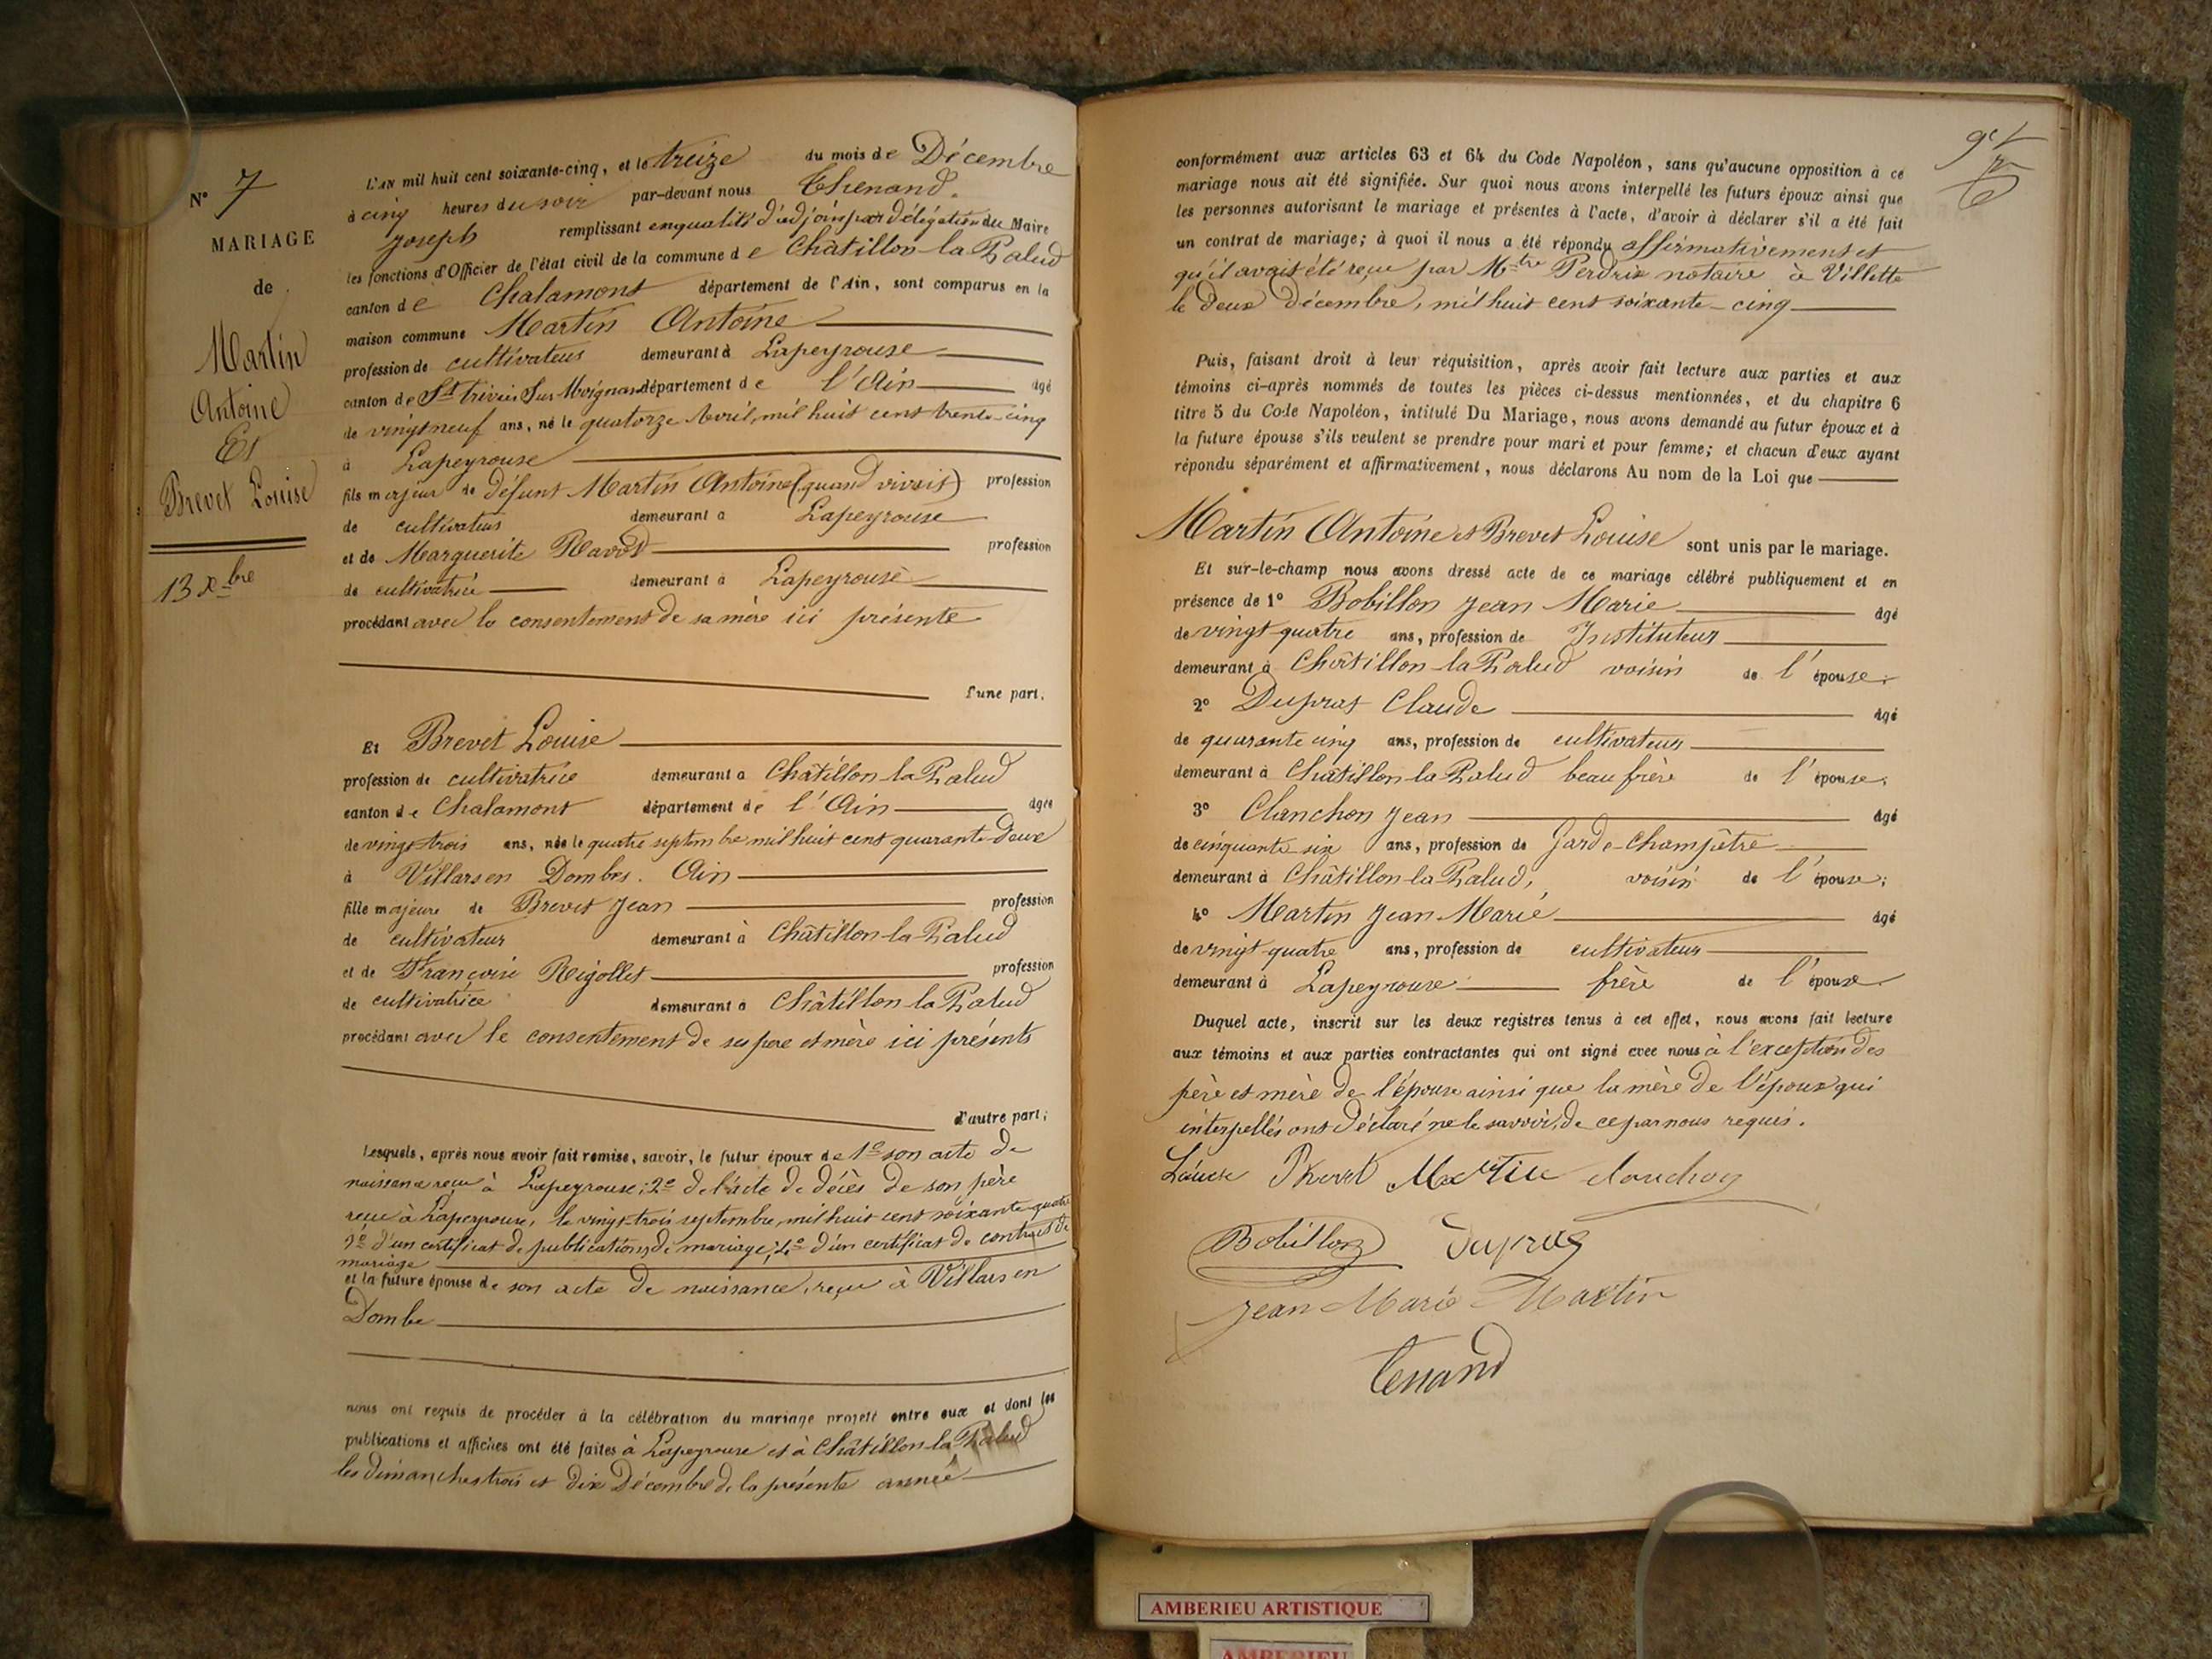 N° 7
MARIAGE
de
Martin
Antoine
Et
Brevet Louise
13 Xbre
L'AN mil huit cent soixante-cinq, et le treize du mois de Décembre
à cinq heures du soir par-devant nous Thenand
Joseph remplissant en qualité d'adjoint par délégation du Maire
les fonctions d'Officier de l'état civil de la commune de Châtillon-la-Palud
canton de Chalamont département de l'Ain, sont comparus en la
maison commune Martin Antoine
profession de cultivateur demeurant à Lapeyrouse
canton de St Trivier Sur Moignans département de l'Ain âgé
de vingt neuf ans, né le quatorze Avril, mil huit cent trente-cinq
à Lapeyrouse
fils majeur de défunt Martin Antoine (quand vivait) profession
de cultivateur demeurant à Lapeyrouse
et de Marguerite profession
de cultivatrice demeurant à Lapeyrouse
procédant avec le consentement de sa mère ici présente
d'une part.
Et Brevet Louise
profession de cultivatrice demeurant à Châtillon la Palud
canton de Chalamont département de l'Ain âgée
de vingt-trois ans, née le quatre septembre mil huit cent quarante-deux
à Villars en Dombes. Ain
fille majeure de Brevet Jean profession
de cultivateur demeurant à Châtillon-la-Palud
et de Françoise Rigollet profession
de cultivatrice demeurant à Châtillon-la-Palud
procédant avec le consentement de ses père et mère ici présents
d'autre part;
Lesquels, après nous avoir fait remise, savoir, le futur époux de 1° son acte de
naissance reçu à Lapeyrouse; 2° de l'acte de décès de son père
reçu à Lapeyrouse, le vingt-trois septembre, mil huit cent soixante-quatre
3° d'un certificat de publications de mariage; 4° d'un certificat de contrat de
mariage
et la future épouse de son acte de naissance, reçu à Villars en
Dombe
nous ont requis de procéder à la célébration du mariage projeté entre eux et dont les
publications et affiches ont été faites à Lapeyrouse et à Châtillon-la-Palud
les dimanches trois et dix Décembre de la présente année
conformément aux articles 63 et 64 du Code Napoléon, sans qu'aucune opposition à ce
mariage nous ait été signifiée. Sur quoi nous avons interpellé les futurs époux ainsi que
les personnes autorisant le mariage et présentes à l'acte, d'avoir à déclarer s'il a été fait
un contrat de mariage; à quoi il nous a été répondu affirmativement et
qu'il avait été reçu par Mtre Perdrix notaire à Villette
le deux Décembre, mil huit cent soixante-cinq
Puis, faisant droit à leur réquisition, après avoir fait lecture aux parties et aux
témoins ci-après nommés de toutes les pièces ci-dessus mentionnées, et du chapitre 6
titre 5 du Code Napoléon, intitulé Du Mariage, nous avons demandé au futur époux et à
la future épouse s'ils veulent se prendre pour mari et pour femme; et chacun d'eux ayant
répondu séparément et affirmativement, nous déclarons Au nom de la Loi que
Martin Antoine et Brevet Louise sont unis par le mariage.
Et sur-le-champ nous avons dressé acte de ce mariage célébré publiquement et en
présence de 1° Bobillon Jean Marie âgé
de vingt-quatre ans, profession de Instituteur
demeurant à Châtillon-la-Palud voisin de l'épouse;
2° Dupras Claude âgé
de quarante cinq ans, profession de cultivateur
demeurant à Châtillon-la-Palud beau frère de l'épouse;
3° Clanchon Jean âgé
de cinquante six ans, profession de Garde-Champêtre
demeurant à Châtillon-la-Palud, voisin de l'épouse;
4° Martin Jean-Marie âgé
de vingt-quatre ans, profession de cultivateur
demeurant à Lapeyrouse frère de l'épouse
Duquel acte, inscrit sur les deux registres tenus à cet effet, nous avons fait lecture
aux témoins et aux parties contractantes qui ont signé avec nous à l'exception des
père et mère de l'épouse ainsi que la mère de l'époux qui
interpellés ont déclaré ne le savoir, de ce par nous requis.
Martin clanchon
Bobillon Dupras
Jean Marie Martin
Tenand
AMBERIEU ARTISTIQUE
AMBERIEU